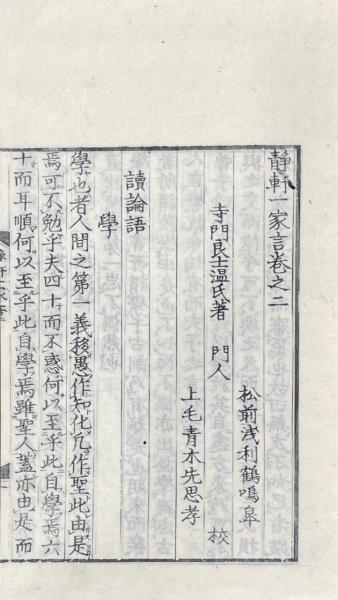 静軒一家言卷之二
寺門良士温氏著 門人
松前浅利鶴鳴皋
上毛青木先思孝
校
讀論語
學
學也者人間之第一義移愚作知化凡作聖此由是
焉可不勉乎夫四十而不惑何以至乎此自學焉六
十而耳順何以至乎此自學焉雖聖人蓋亦由是而